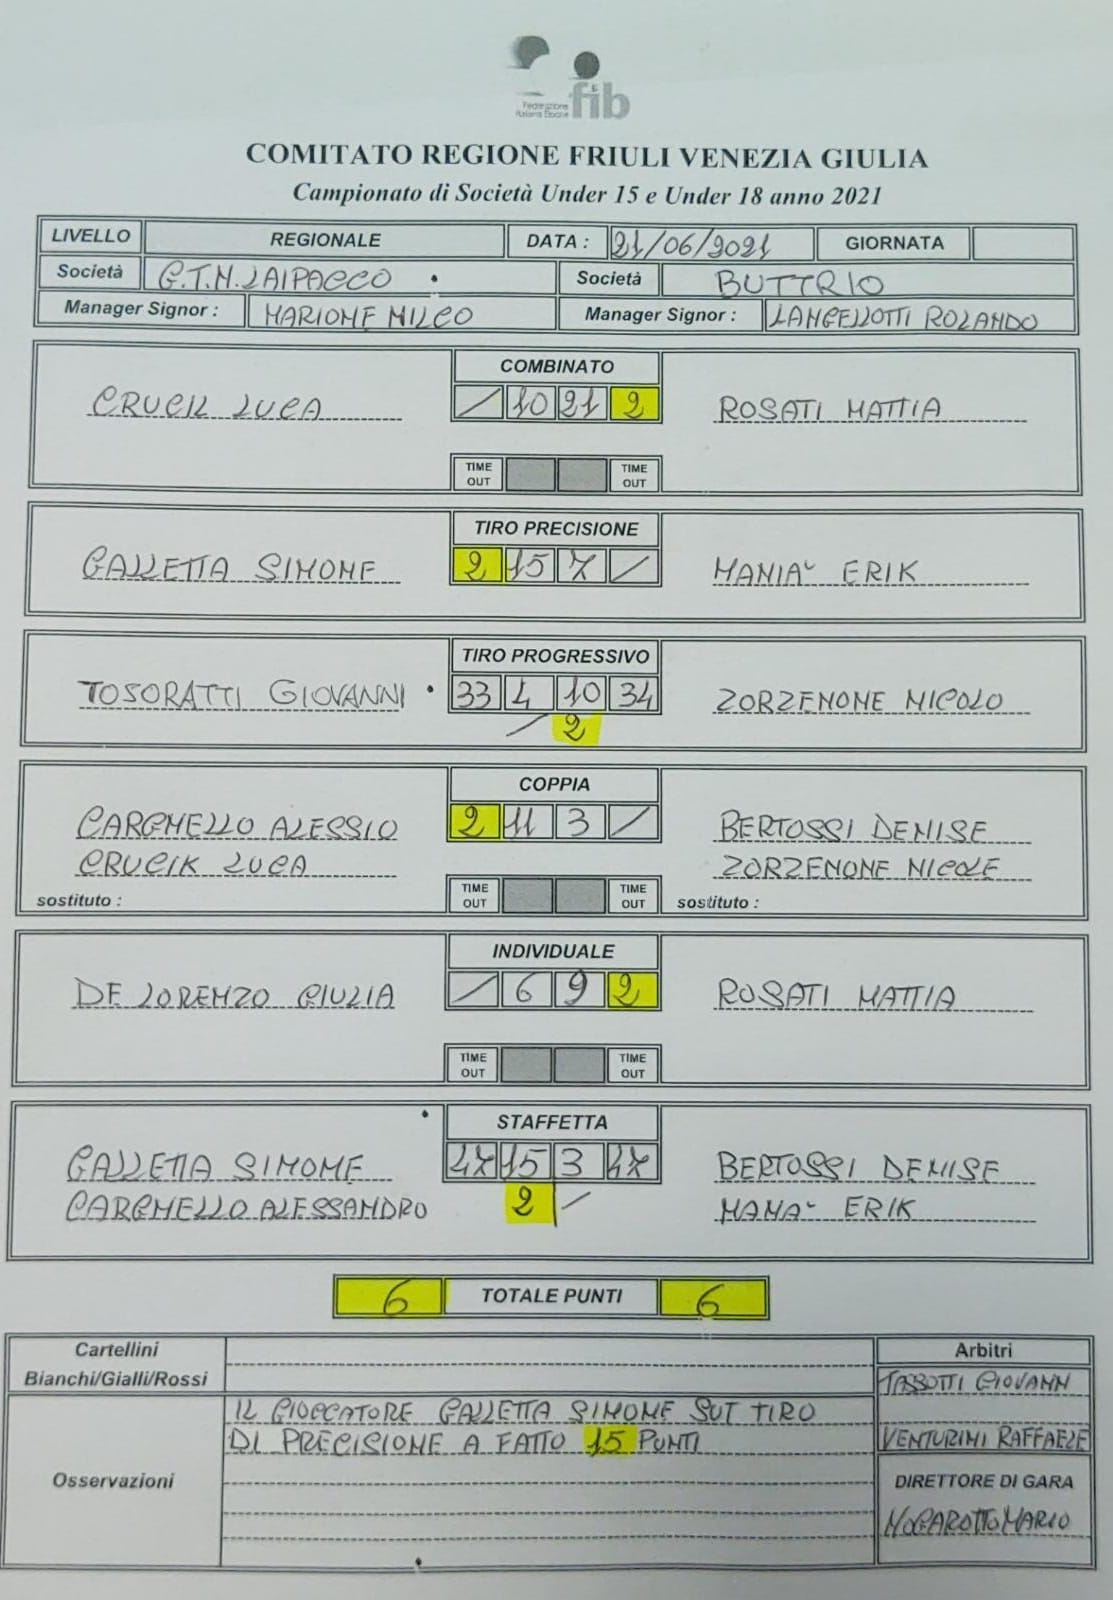 Federazione
Italiana Bocce
fib
COMITATO REGIONE FRIULI VENEZIA GIULIA
Campionato di Società Under 15 e Under 18 anno 2021
LIVELLO REGIONALE DATA : 21/06/2021 GIORNATA
Società G.T.N. LAIPACCO Società BUTTRIO
Manager Signor : MARIONE MILCO Manager Signor : LANCELLOTTI ROLANDO
COMBINATO
CRUCIL LUCA / 10 21 2 ROSATI MATTIA
TIME OUT TIME OUT
TIRO PRECISIONE
GALLETTA SIMONE 2 15 7 / MANIA' ERIK
TIRO PROGRESSIVO
TOSORATTI GIOVANNI 33 4 10 34 ZORZENONE NICOLO
/ 2
COPPIA
CARGNELLO ALESSIO 2 11 3 / BERTOSSI DENISE
CRUCIK LUCA ZORZENONE NICOLE
sostituto : TIME OUT TIME OUT sostituto :
INDIVIDUALE
DE LORENZO GIULIA / 6 9 2 ROSATI MATTIA
TIME OUT TIME OUT
STAFFETTA
GALLETTA SIMONE 47 15 3 47 BERTOSSI DENISE
CARGNELLO ALESSANDRO 2 / MANA' ERIK
6 TOTALE PUNTI 6
Cartellini Arbitri
Bianchi/Gialli/Rossi TASSOTTI GIOVANN
IL GIOCCATORE GALLETTA SIMONE SUT TIRO
DI PRECISIONE A FATTO 15 PUNTI VENTURINI RAFFAELE
Osservazioni DIRETTORE DI GARA
NOGAROTTO MARIO